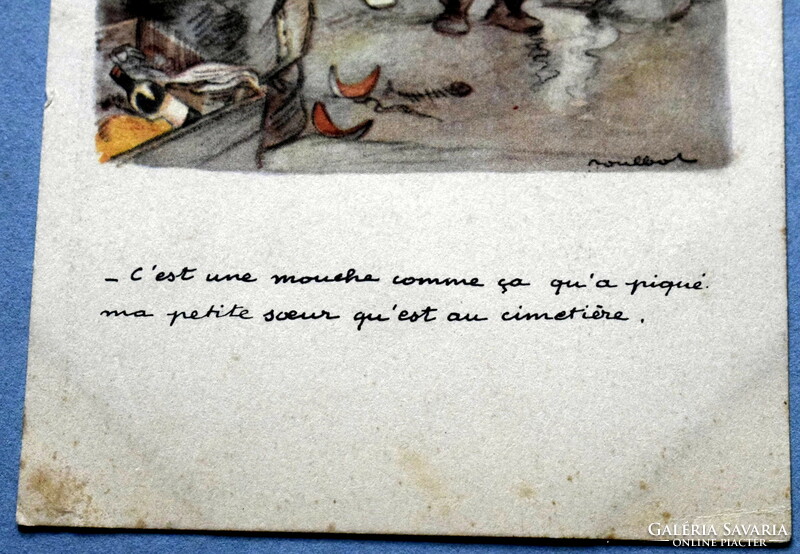 poulbot
– C'est une mouche comme ça qu'a piqué
ma petite sœur qu'est au cimetière.
GALÉRIA SAVARIA
ONLINE PIACTÉR